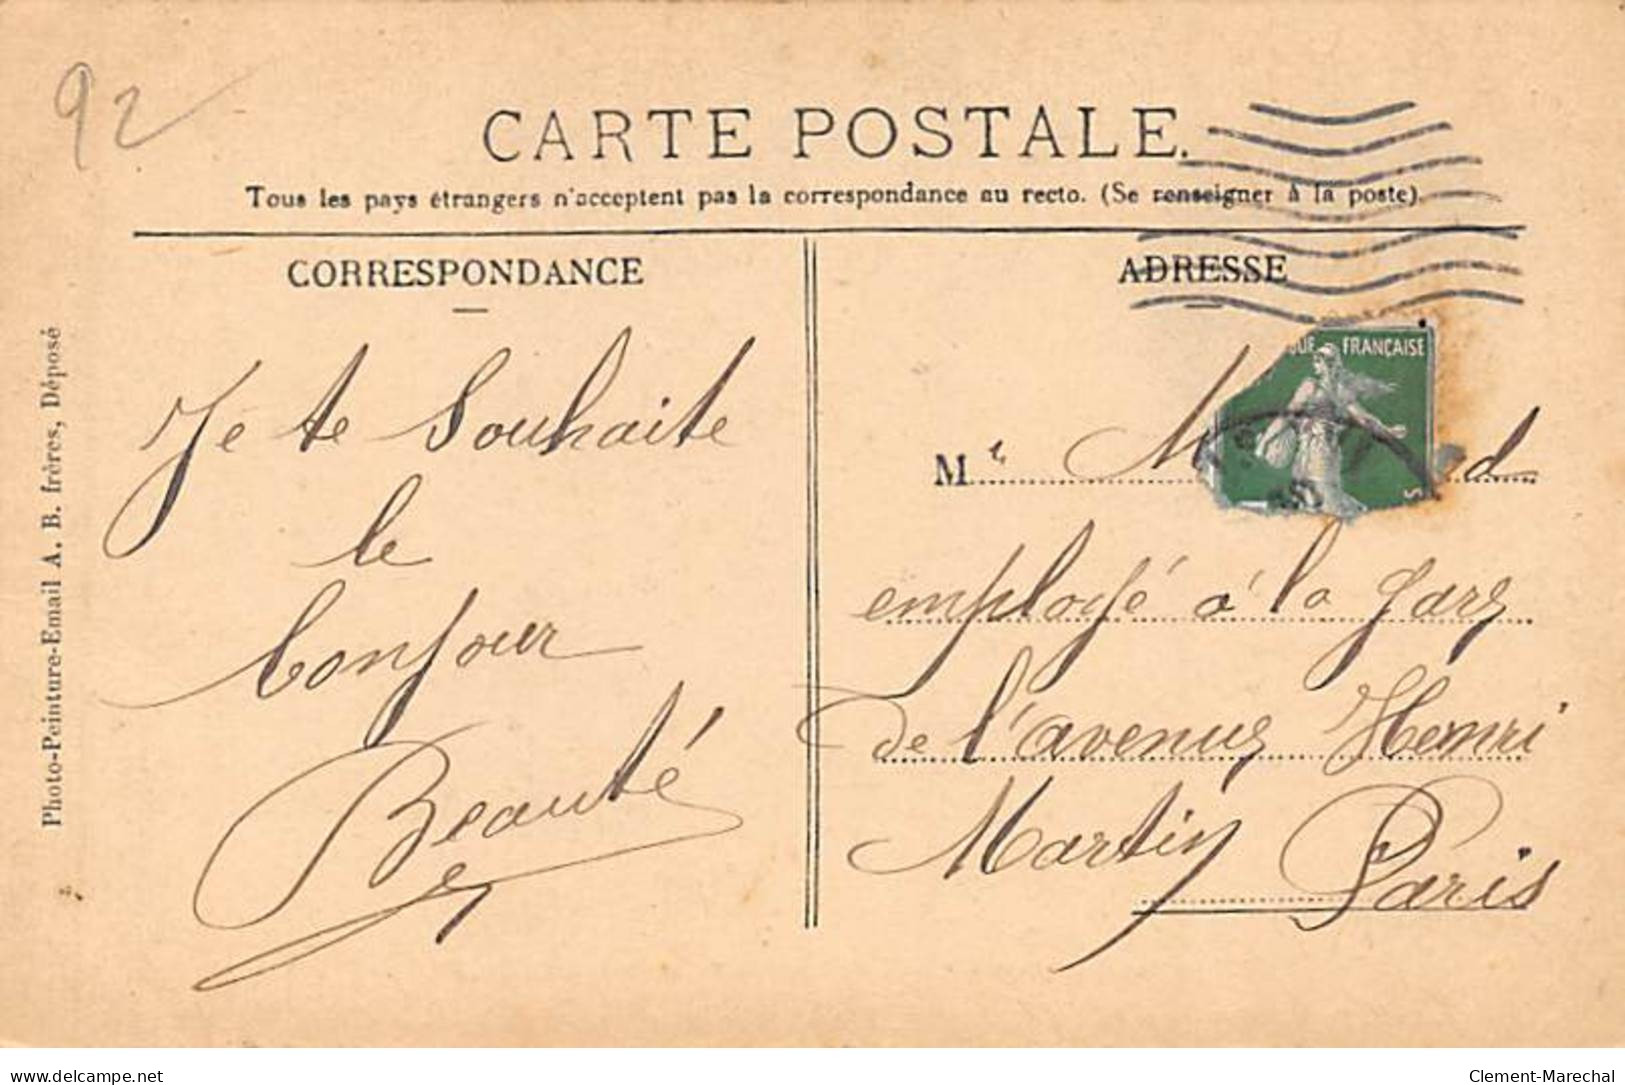 92
CARTE POSTALE.
Tous les pays étrangers n'acceptent pas la correspondance au recto. (Se renseigner à la poste).
CORRESPONDANCE
Je te Souhaite
le
bonjour
Beauté
ADRESSE
FRANÇAISE
M
employé à la gare
de l'avenue Henri
Martin Paris
Photo-Peinture-Email A. B. frères, Déposé
delcampe.net
Clement-Marechal